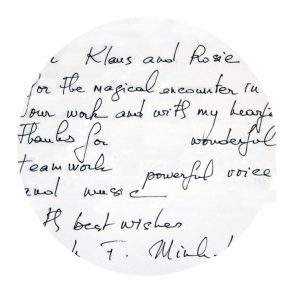 Klaus and Rosie
for the magical encounter in
your work and with my
thanks for wonderful
teamwork powerful voice
and music
best wishes
F.